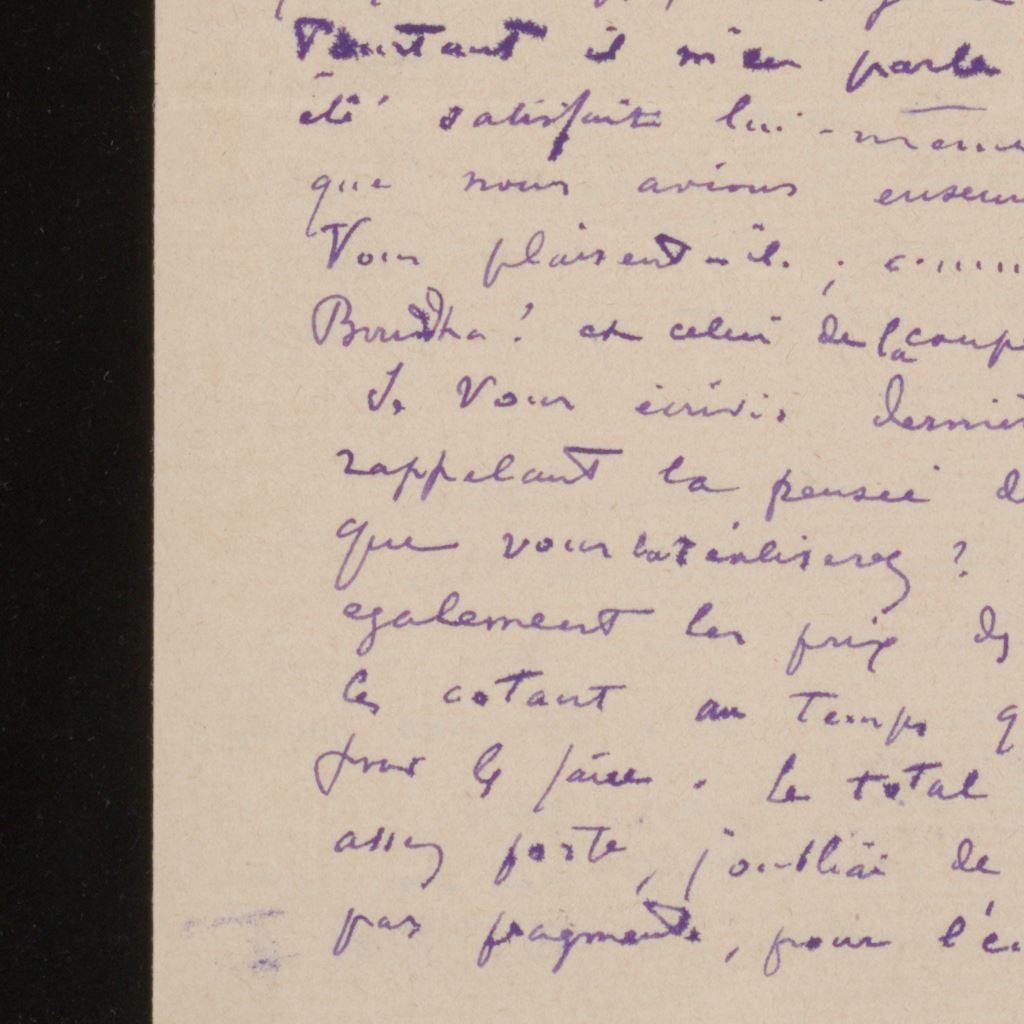 Pourtant il m'en parle
été satisfait lui-même
que nous avions
Vous plaisent-ils ;
Boudha ! et celui de la coupe
Je vous écrivis
rappelant la pensée
que vous réaliserez ?
egalement les prix
les cotant au temps
pour les faire . Le total
assez forte, j'oubliai de
pas fragments, pour